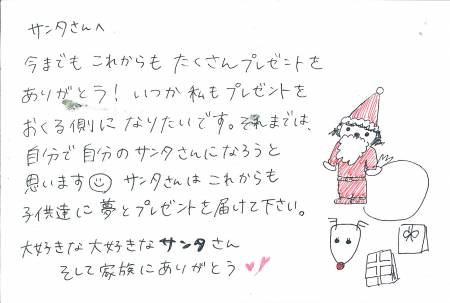 サンタさんへ
今までも これからも たくさんプレゼントを
ありがとう! いつか私もプレゼントを
おくる側に なりたいです。それまでは、
自分で自分のサンタさんになろうと
思います☺ サンタさんは これからも
子供達に 夢とプレゼントを届けて下さい。
大好きな大好きなサンタさん
そして家族にありがとう♥♥